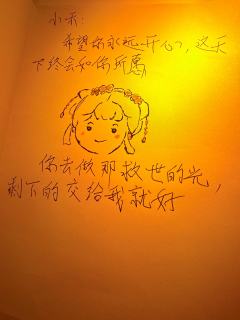 小禾：
希望你永远开心，这天
下终会如你所愿
你去做那救世的光，
剩下的交给我就好